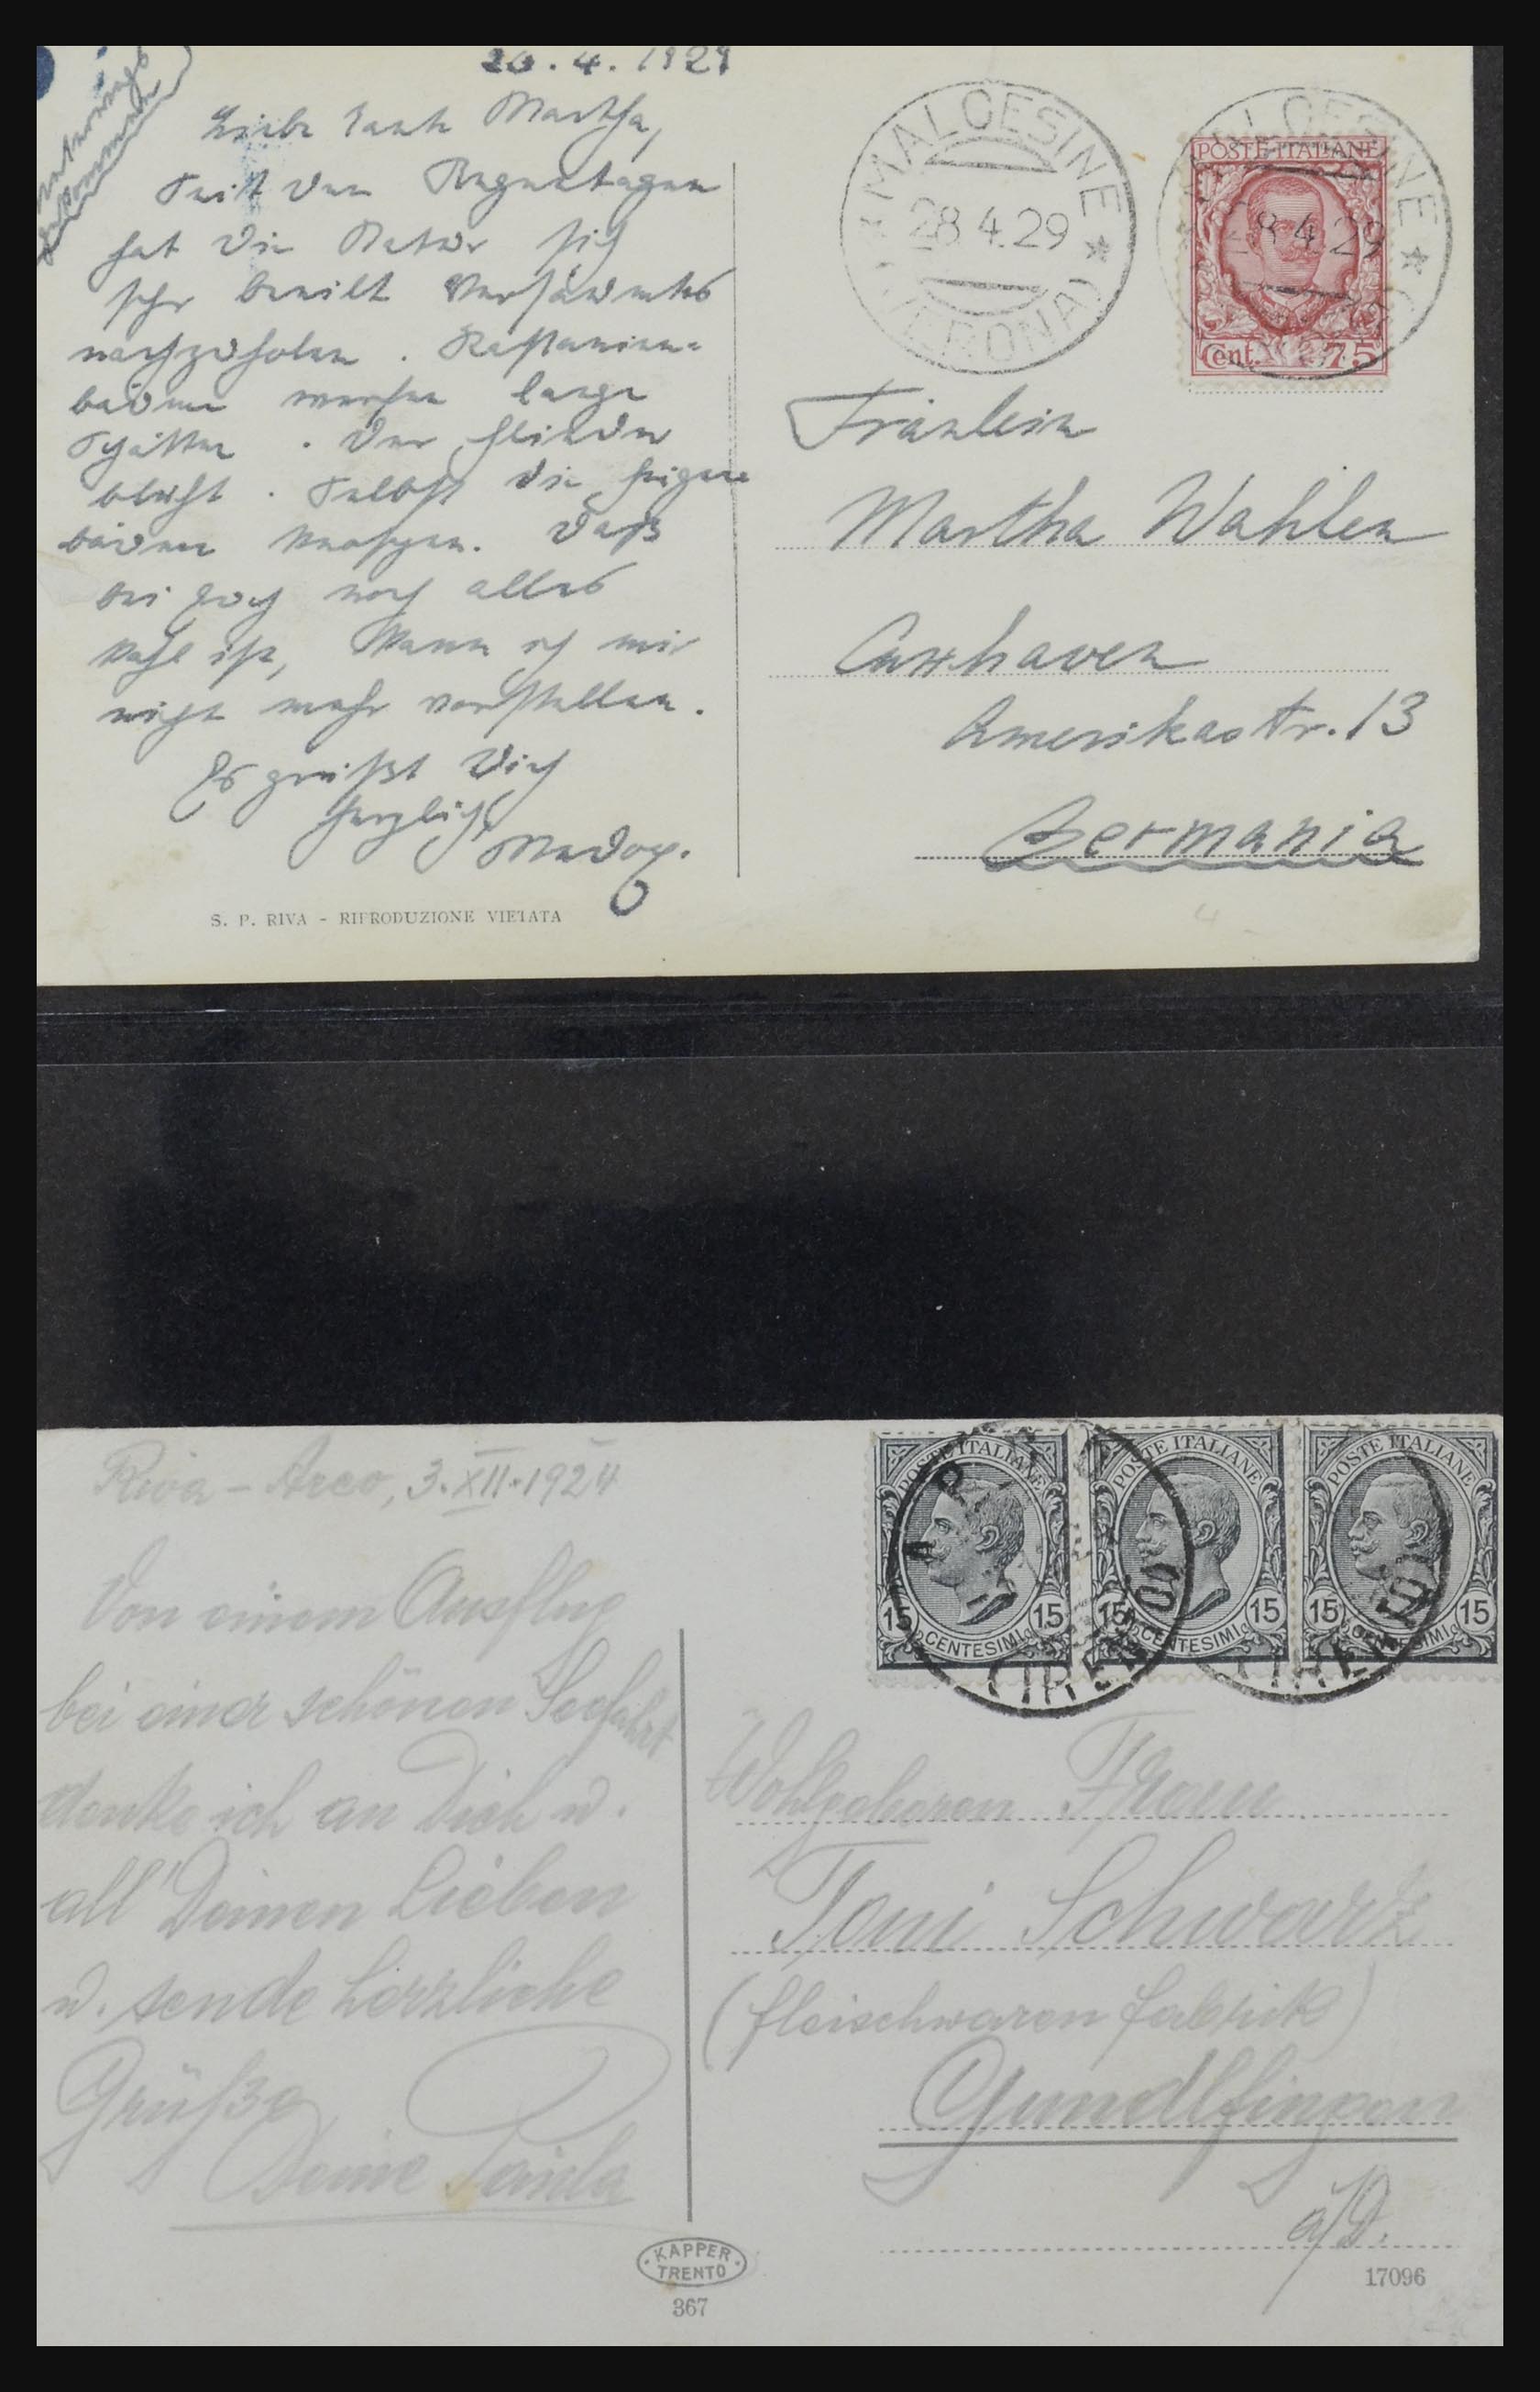 20.4.1929
Liebe Tante Martha,
Seit den Regentagen
hat die Natur sich
sehr beeilt Versäumtes
nachzuholen. Kastanien-
bäume werfen lange
Schatten. Der Flieder
blüht. Selbst die Feigen
bäume knospen. Daß
bei Euch noch alles
kahl ist, kann ich mir
nicht mehr vorstellen.
Es grüßt Dich
herzlich
S. P. RIVA - RIPRODUZIONE VIETATA
MALCESINE
28 4.29
(VERONA)
MALCESINE
28 4.29
POSTE ITALIANE
Cent. 75
Fräulein
Martha Wahlen
Cuxhaven
Amerikastr. 13
Germania
Riva - Arco, 3.XII.1924
Von einem Ausflug
bei einer schönen Seefahrt
denke ich an Dich u.
all' Deinen Lieben
u. sende herzliche
Grüße
Deine
POSTE ITALIANE
15 CENTESIMI 15
POSTE ITALIANE
15 CENTESIMI 15
POSTE ITALIANE
15 CENTESIMI 15
Wohlgeboren Frau
Toni Schwarz
(Fleischwarenfabrik)
Gundlfingen
a/D.
KAPPER
TRENTO
367
17096